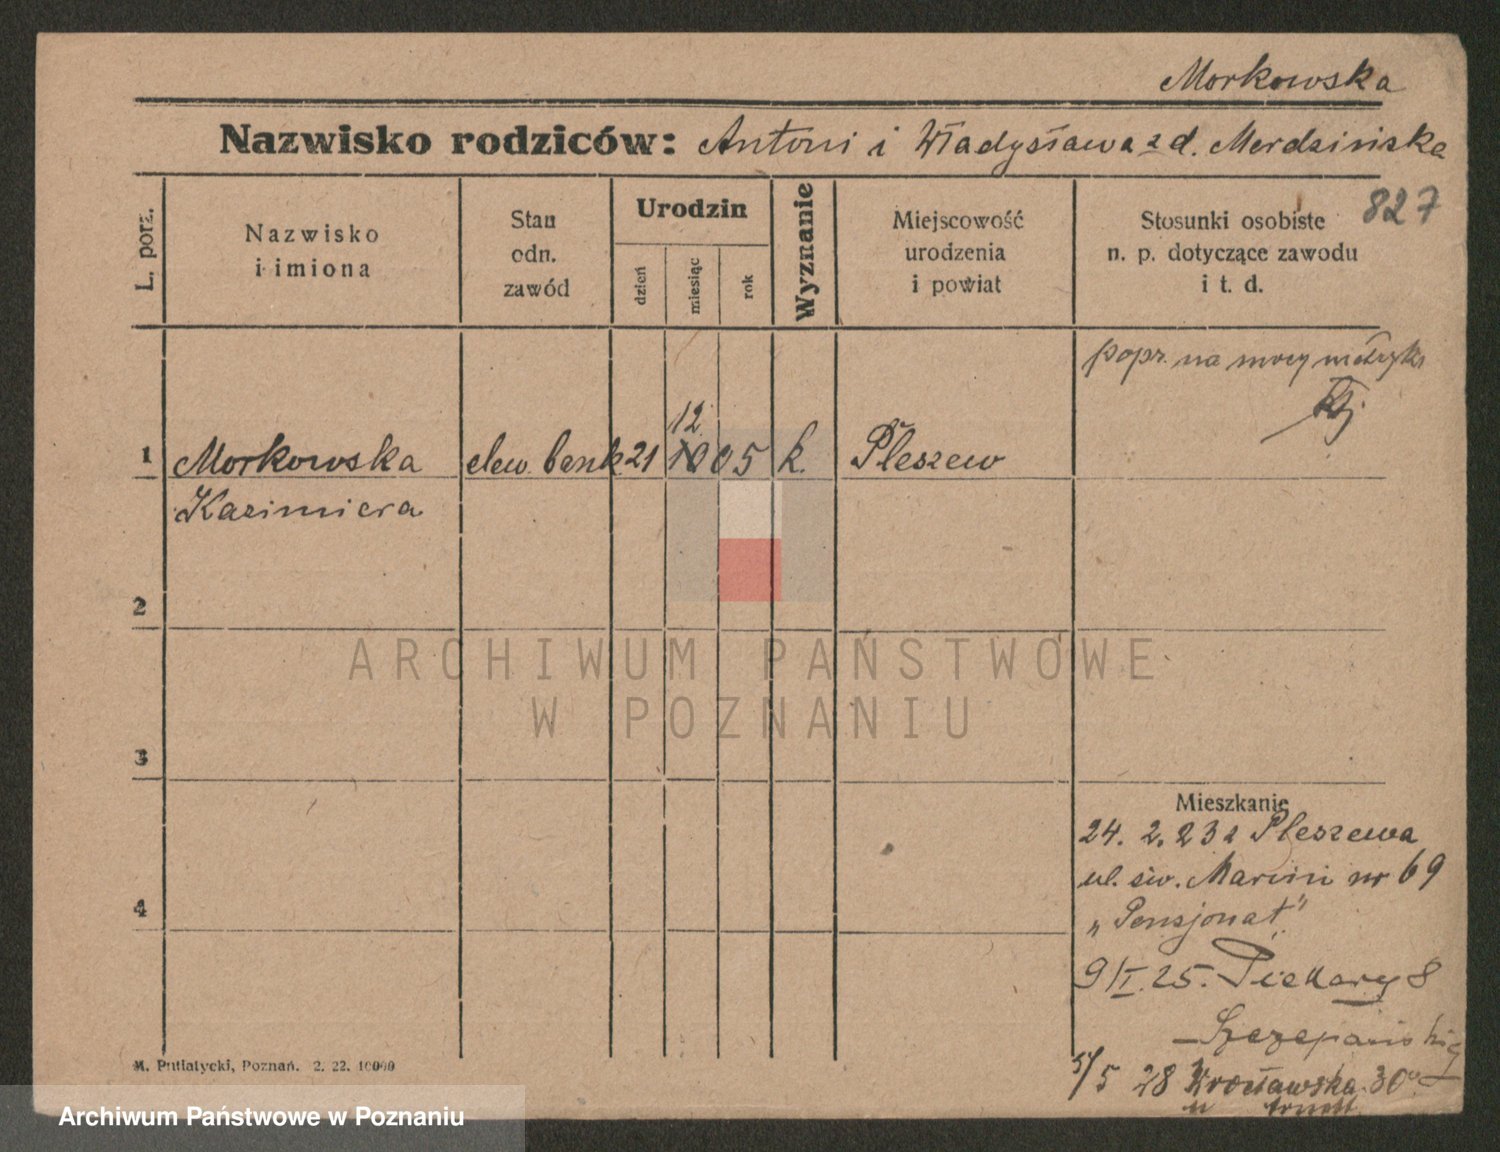 Morkowska
Nazwisko rodziców: Antoni i Władysława z d. Merdzińska
827
L. porz.
Nazwisko
i imiona
Stan
odn.
zawód
Urodzin
dzień
miesiąc
rok
Wyznanie
Miejscowość
urodzenia
i powiat
Stosunki osobiste
n. p. dotyczące zawodu
i t. d.
popr. na mocy metryki
12
1 Morkowska elew. bank. 21 10 05 k. Pleszew
Kazimiera
2
3
4
ARCHIWUM PAŃSTWOWE
W POZNANIU
Mieszkanie
24. 2. 23 z Pleszewa
ul. św. Marcin nr 69
„Pensjonat"
9/I. 25. Piekary 8
Szczepański
5/5 28 30
M. Putiatycki, Poznań. 2. 22. 10000
Archiwum Państwowe w Poznaniu